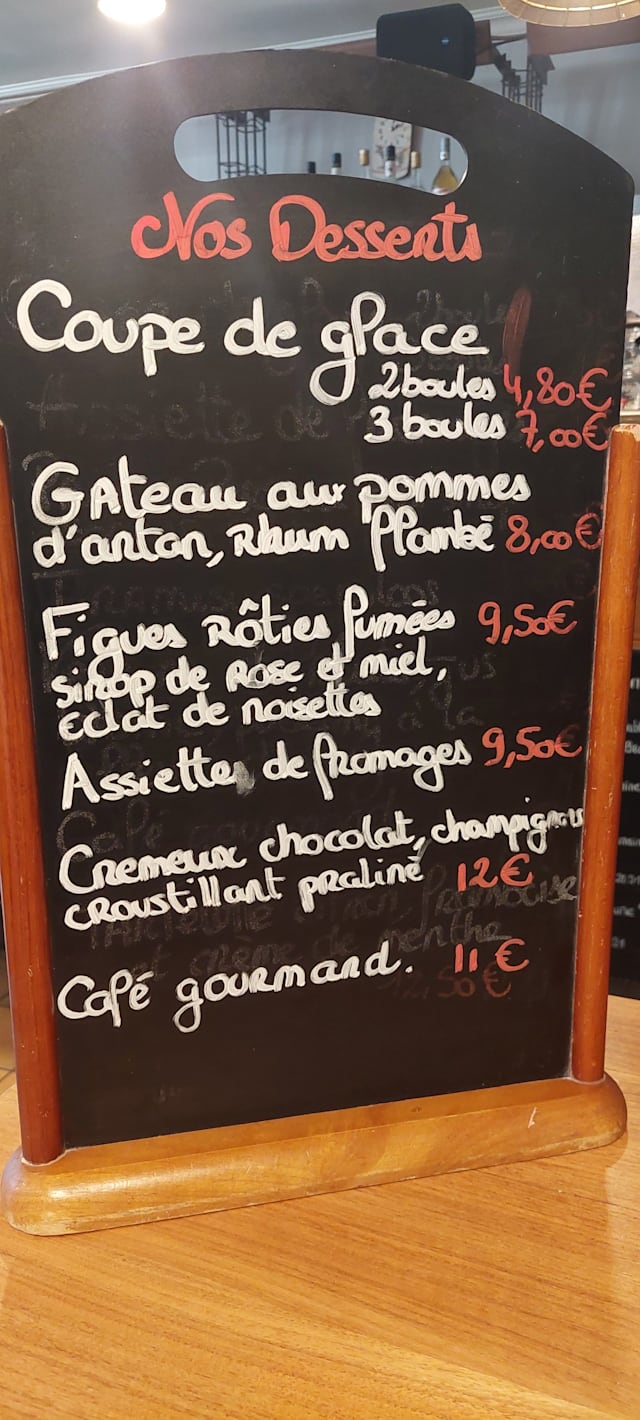 Nos Desserts
Coupe de glace
2 boules 4,80€
3 boules 7,00€
Gateau aux pommes
d'antan, Rhum flambé 8,00€
Figues Rôties fumées 9,50€
sirop de Rose et miel,
éclat de noisettes
Assiette de fromages 9,50€
Cremeux chocolat, champignons
croustillant praliné 12€
Café gourmand. 11€